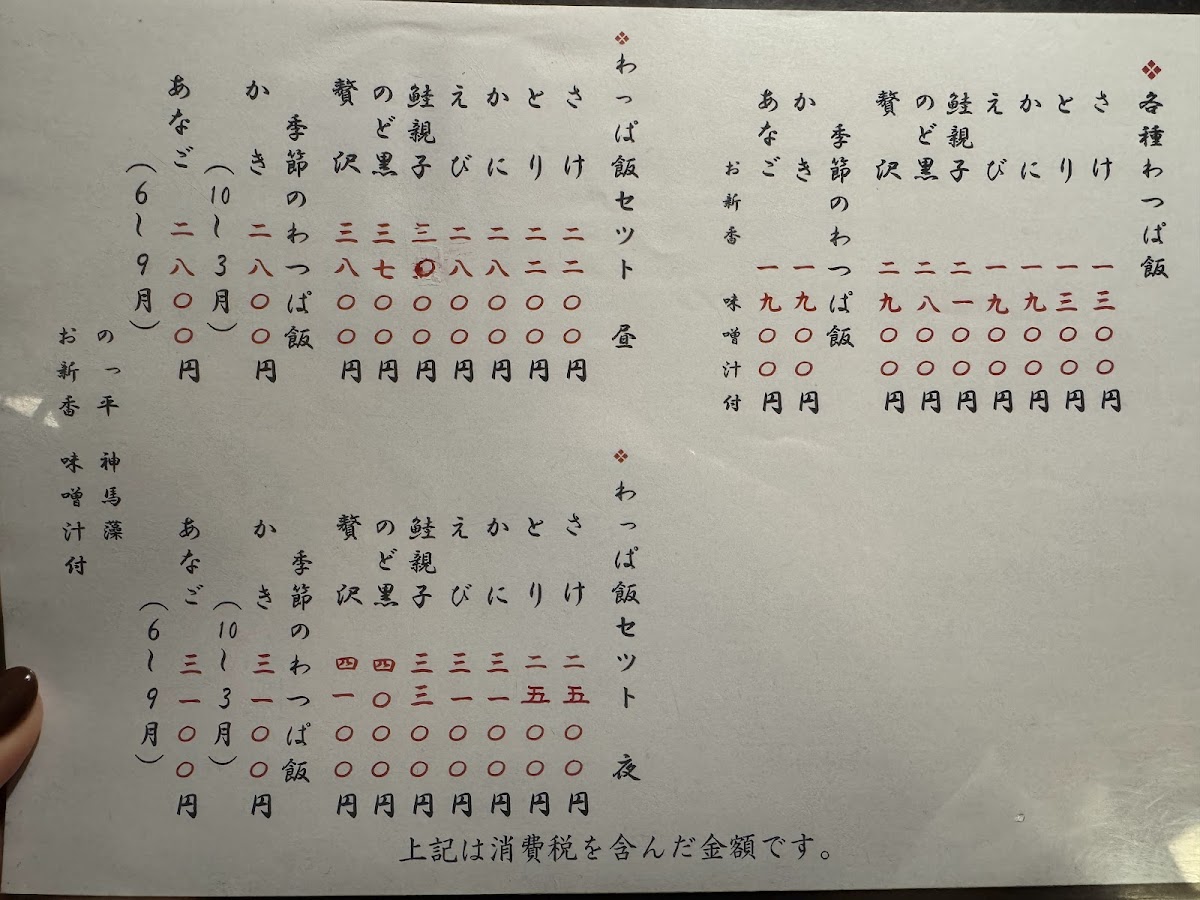 ❖各種わっぱ飯
さけ 一三〇〇円
とり 一三〇〇円
かに 一九〇〇円
えび 一九〇〇円
鮭親子 二一〇〇円
のど黒 二八〇〇円
贅沢 二九〇〇円
季節のわっぱ飯
かき 一九〇〇円
あなご 一九〇〇円
お新香 味噌汁付
❖わっぱ飯セット 昼
さけ 二二〇〇円
とり 二二〇〇円
かに 二八〇〇円
えび 二八〇〇円
鮭親子 三〇〇〇円
のど黒 三七〇〇円
贅沢 三八〇〇円
季節のわっぱ飯
かき 二八〇〇円
(10〜3月)
あなご 二八〇〇円
(6〜9月)
❖わっぱ飯セット 夜
さけ 二五〇〇円
とり 二五〇〇円
かに 三一〇〇円
えび 三一〇〇円
鮭親子 三三〇〇円
のど黒 四〇〇〇円
贅沢 四一〇〇円
季節のわっぱ飯
かき 三一〇〇円
(10〜3月)
あなご 三一〇〇円
(6〜9月)
のっ平 神馬藻
お新香 味噌汁付
上記は消費税を含んだ金額です。